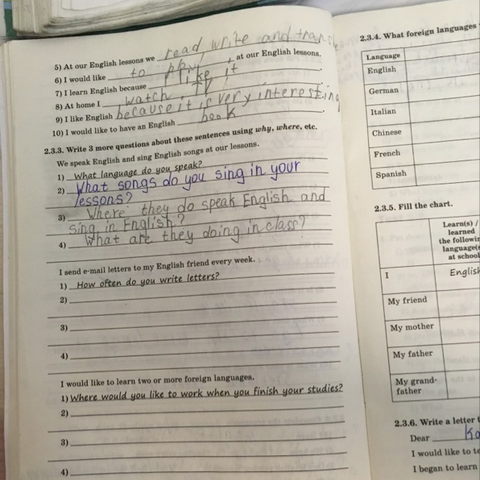 5) At our English lessons we read write and
6) I would like to play at our English lessons.
7) I learn English because I like it
8) At home I watch TV
9) I like English because it is very interesting
10) I would like to have an English book
2.3.3. Write 3 more questions about these sentences using why, where, etc.
We speak English and sing English songs at our lessons.
1) What language do you speak?
2) What songs do you sing in your
lessons?
3) Where they do speak English and
sing in English?
4) What are they doing in class?
I send e-mail letters to my English friend every week.
1) How often do you write letters?
2)
3)
4)
I would like to learn two or more foreign languages.
1) Where would you like to work when you finish your studies?
2)
3)
4)
2.3.4. What foreign languages
Language
English
German
Italian
Chinese
French
Spanish
2.3.5. Fill the chart.
Learn(s) /
learned
the
at school
I English
My friend
My mother
My father
My grand-
father
2.3.6. Write a letter
Dear
I would like to
I began to learn